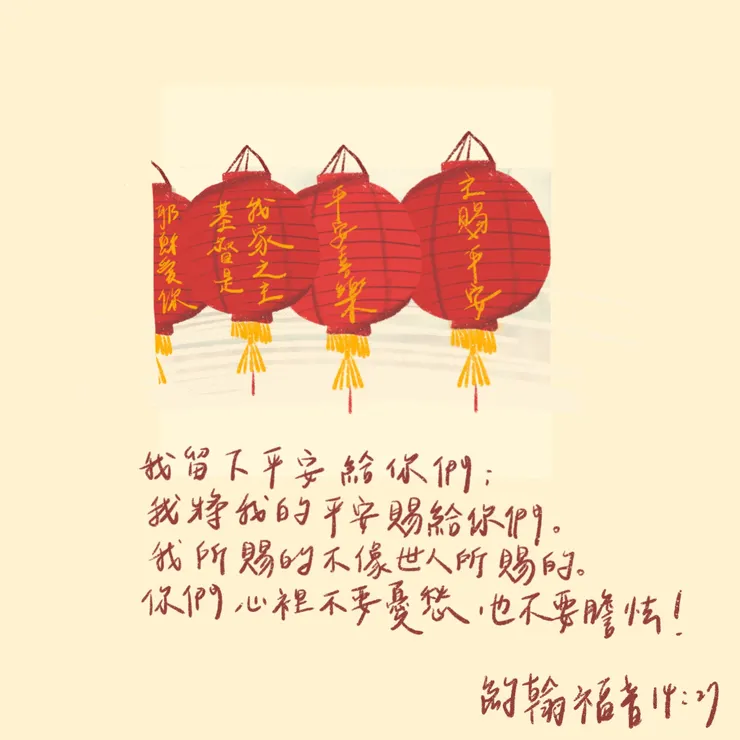 耶穌愛你
基督是
我家之主
平安喜樂
主賜平安
我留下平安給你們；
我將我的平安賜給你們。
我所賜的不像世人所賜的。
你們心裡不要憂愁，也不要膽怯！
約翰福音14:27